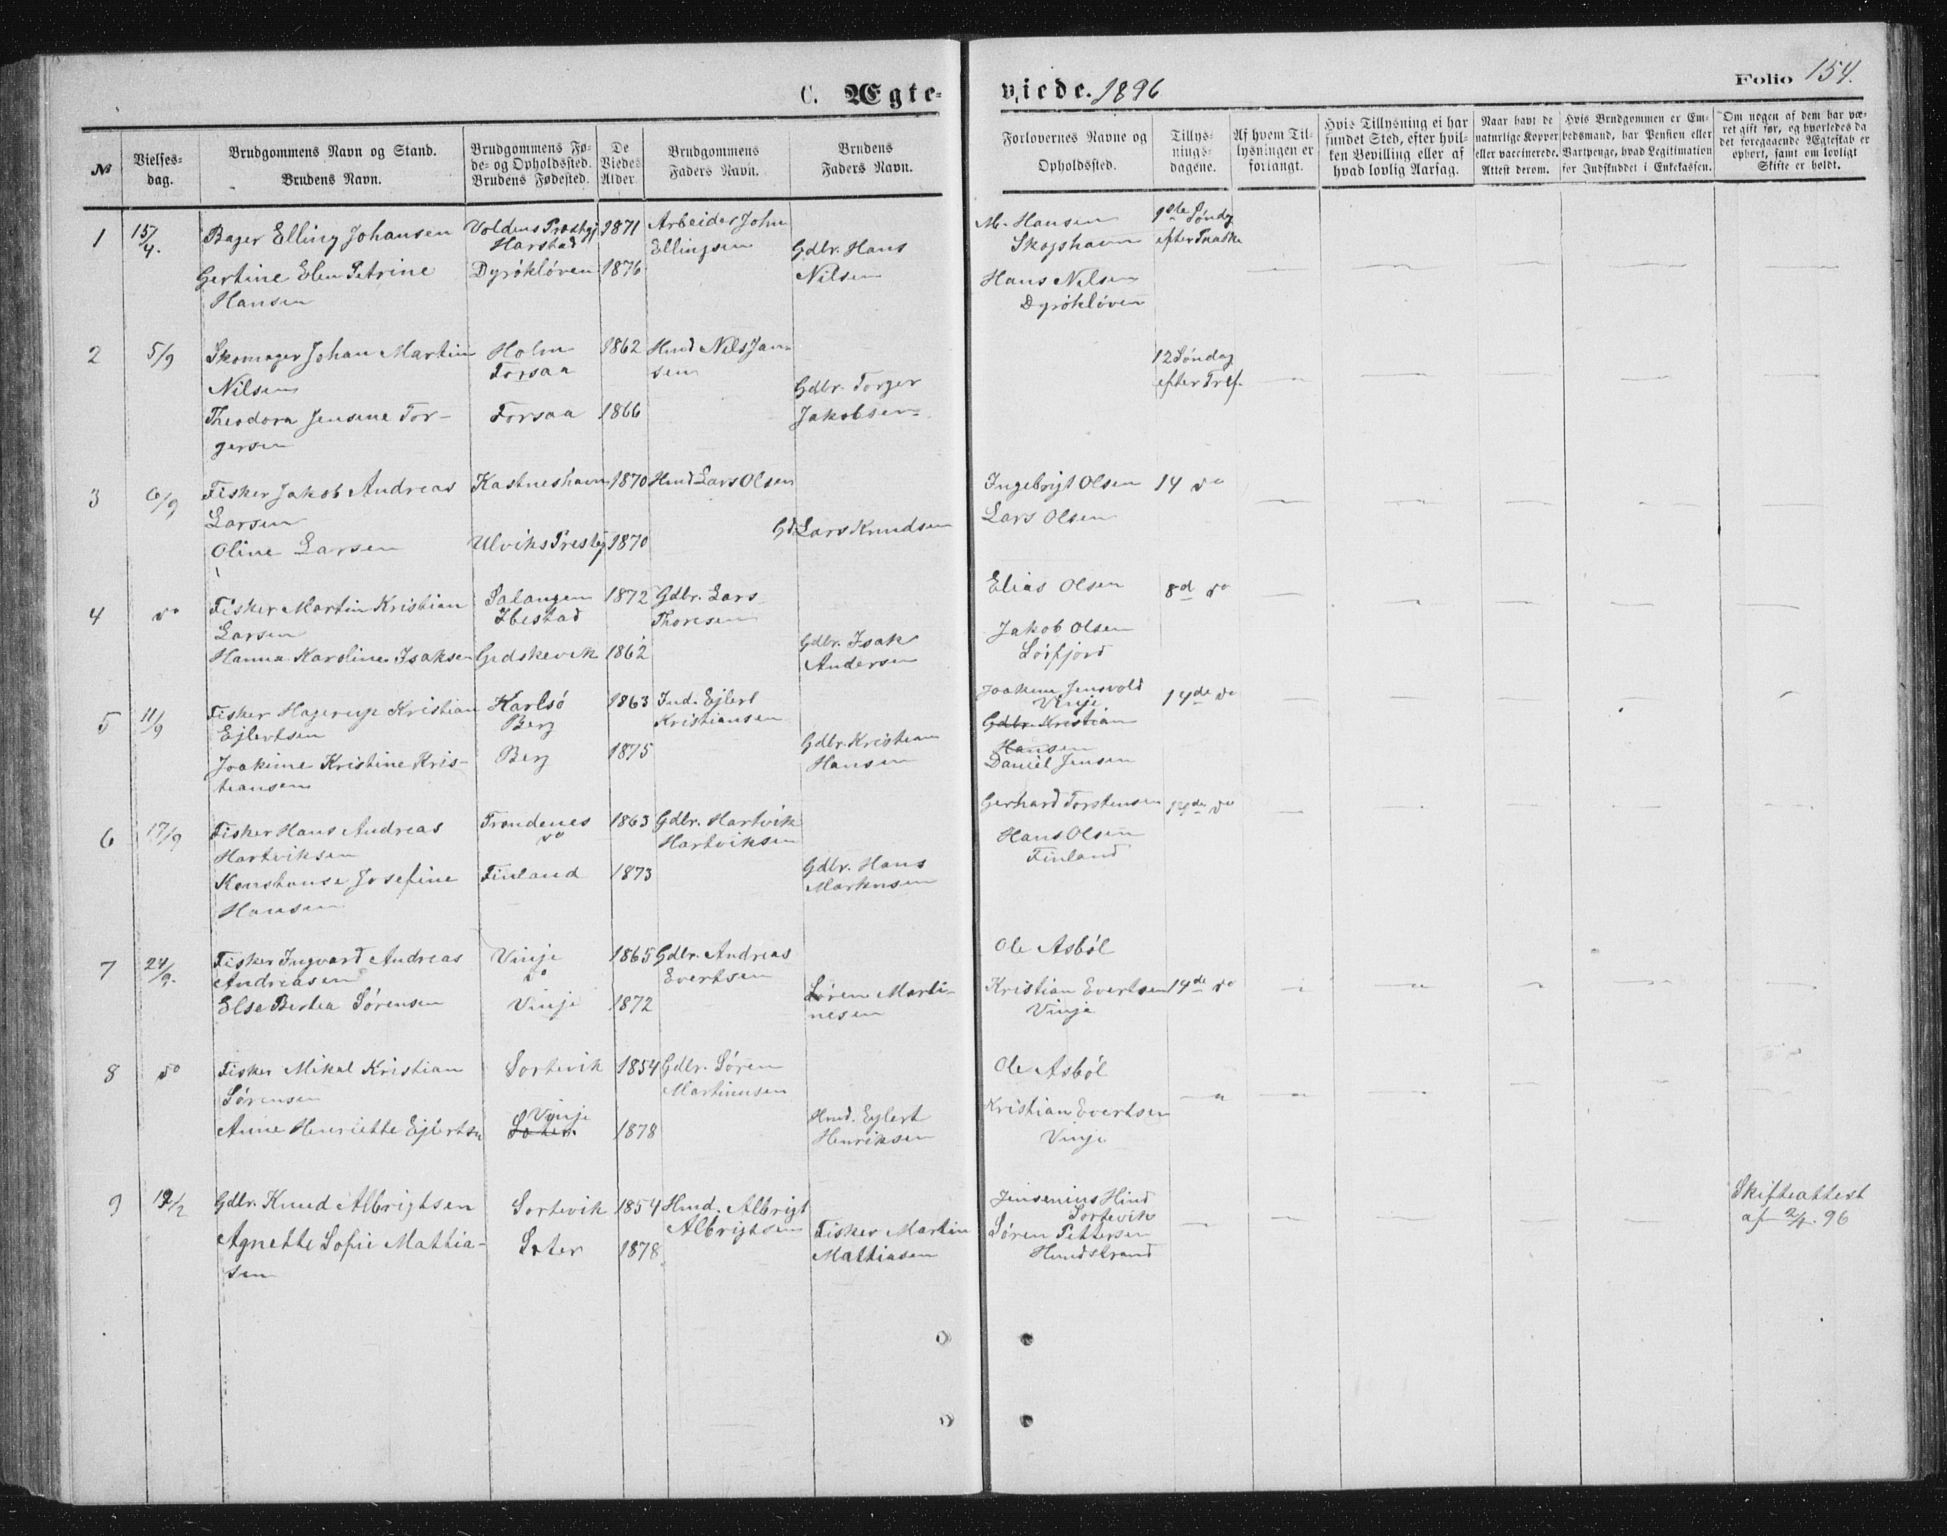 C. Ægteviede. 1896
Folio 154.
№
Vielsesdag.
Brudgommens Navn og Stand.
Brudens Navn.
Brudgommens Føde- og Opholdssted.
Brudens Fødested.
De Viedes Alder.
Brudgommens Faders Navn.
Brudens Faders Navn.
Forlovernes Navne og Opholdssted.
Tillysningsdagene.
Af hvem Tillysningen er forlangt.
Hvis Tillysning ei har fundet Sted, efter hvilken Bevilling eller af hvad lovlig Aarsag.
Naar havt de naturlige Kopper eller vaccinerede. Attest derom.
Hvis Brudgommen er Embedsmand, har Pension eller Vartpenge, hvad Legitimation for Indskuddet i Enkekassen.
Om nogen af dem har været gift før, og hvorledes da det foregaaende Ægteskab er ophørt, samt om lovligt Skifte er holdt.
1 15/4. Bager Elling Johansen Voldens Præstgj Harstad 1871 Arbeider John Ellingsen
Gertine Elen Petrine Hansen Dyrökløven 1876 Gdbr. Hans Nilsen
M. Hansen Skogshavn 1ste Søndg efter Paaske
Hans Nilsen Dyrökløven
2 5/9 Skomager Johan Martin Nilsen Holm Forsaa 1862 Hmd Nils Jansen
Theodora Jensine Torgersen Forsaa 1866 Gdbr. Torger Jakobsen
12 Søndag efter Tref.
3 6/9 Fisker Jakob Andreas Larsen Kastneshavn 1870 Hmd Lars Olsen
Oline Larsen Ulviks Prestgj 1870 Gd. Lars Knudsen
Ingebrigt Olsen 14 do
Lars Olsen
4 do Fisker Martin Kristian Larsen Salangen Ibestad 1872 Gdbr. Lars Thoresen
Hanna Karoline Isaksen Gidskevik 1862 Gdbr. Isak Andersen
Elias Olsen 8d do
Jakob Olsen
5 11/9 Fisker Hagerup Kristian Ejlertsen Karlsö Berg 1863 Ind. Ejlert Kristiansen
Joakime Kristine Kristiansen Berg 1875 Gdbr. Kristian Hansen
Joakim Jensvold Vinje 14de do
Gdbr. Kristian Hansen
Daniel Jensen
6 17/9 Fisker Hans Andreas Hartviksen Trondenes do 1863 Gdbr. Hartvik Hartviksen
Konstanse Josefine Hansen Finland 1873 Gdbr. Hans Markusen
Gerhard Torstensen 14de do
Hans Olsen Finland
7 24/9. Fisker Ingvard Andreas Andreasen Vinje do 1865 Gdbr. Andreas Evertsen
Else Bertea Sørensen Vinje 1872 Søren Martinesen
Ole Asböl
Kristian Evertsen 14de do
Vinje
8 do Fisker Mikal Kristian Sørensen Sortevik 1854 Gdbr. Sören Martinusen
Anne Henriette Ejlertsn Vinje 1878 Hmd. Eylert Henriksen
Ole Asböl
Kristian Evertsen
Vinje
9 Gdbr. Knud Albrigtsen Sortevik 1854 Hmd. Albrigt Albrigtsen
Agnette Sofie Mathiasen Sæter 1878. Fisker Martin Mathiasen
Jensenius Hind Sortevik
Søren Pettersen Hundstrand
Skifteattest af 2/1. 96